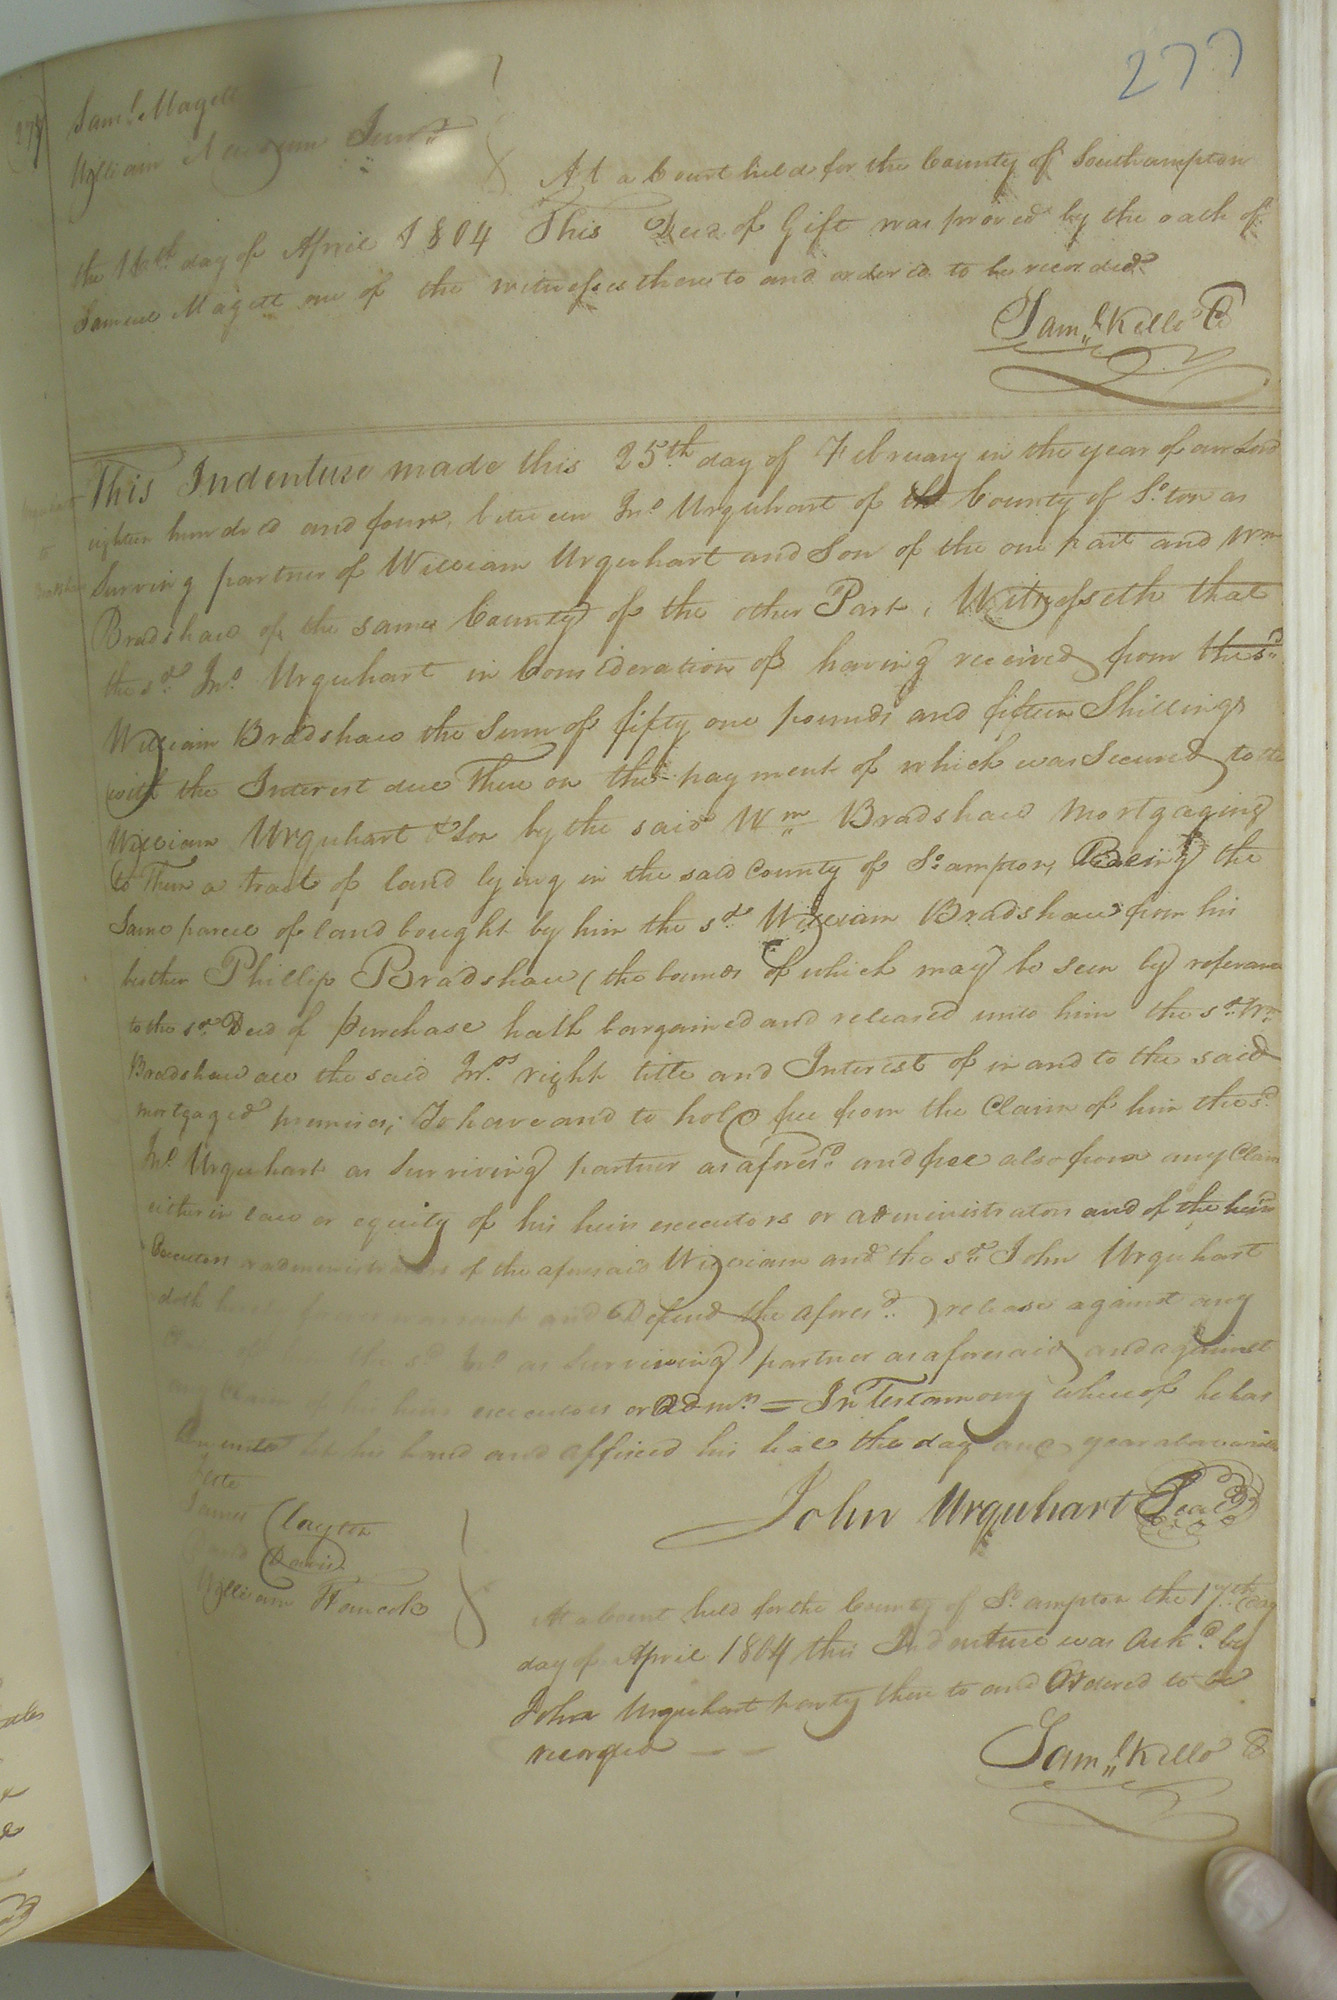 277
277
Saml Magett
William Newsum Junr
At a Court held for the County of Southampton
the 16th day of April 1804 This Deed of Gift was proved by the oath of
Samuel Magett one of the witnesses thereto and ordered to be recorded
Saml Kello C
Urquhart
to
Bradshaw
This Indenture made this 25th day of February in the year of our Lord
eighteen hundred and four, between Jno Urquhart of the County of So ton as
Surving partner of William Urquhart and Son of the one part and Wm
Bradshaw of the same County of the other Part, Witnesseth that
the sd Jno Urquhart in Consideration of having received from the sd
William Bradshaw the Sum of fifty one pounds and fifteen Shillings
with the Interest due There on the payment of which was Secured to the
William Urquhart & Son by the said Wm Bradshaw Mortgaging
to Them a tract of land lying in the said County of So ampton, Being the
Same parcel of land bought by him the sd William Bradshaw from his
brother Phillip Bradshaw (the bounds of which may be seen by referance
to the sd Deed of purchase hath bargained and released unto him the sd Wm
Bradshaw all the said Jnos right title and Interest of in and to the said
mortgaged premises; To have and to hold free from the Claim of him the sd
Jno Urquhart as Surviving partner as aforesd and free also from any Claim
either in law or equity of his heirs executors or administrators and of the heirs
Executors or administrators of the aforesaid William and the sd John Urquhart
doth hereby forever warrant and Defend the aforesd release against any
Claim of him the sd Jno as Surviving partner as aforesaid and against
any Claim of his heirs executors or Admrs = In Testamony whereof he has
hereunto set his hand and affixed his seal the day and year above written
Teste
James Clayton
Davis
William Hancock
John Urquhart Seal
At a Court held for the County of So ampton the 17th day
day of April 1804 this Indenture was Ackd by
John Urquhart party there to and Ordered to be
recorded
Saml Kello C